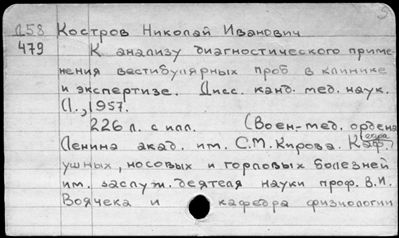 Д58 Костров Николай Иванович
479 К анализу диагностического приме-
нения вестибулярных проб в клинике
и экспертизе. Дисс. канд. мед. наук.
Л., 1957.
226 л. с илл. (Воен.-мед. ордена
Ленина акад. им. С.М. Кирова. Кафедра
ушных, носовых и горловых болезней
им. заслуж. деятеля науки проф. В.И.
Воячека и кафедра физиологии